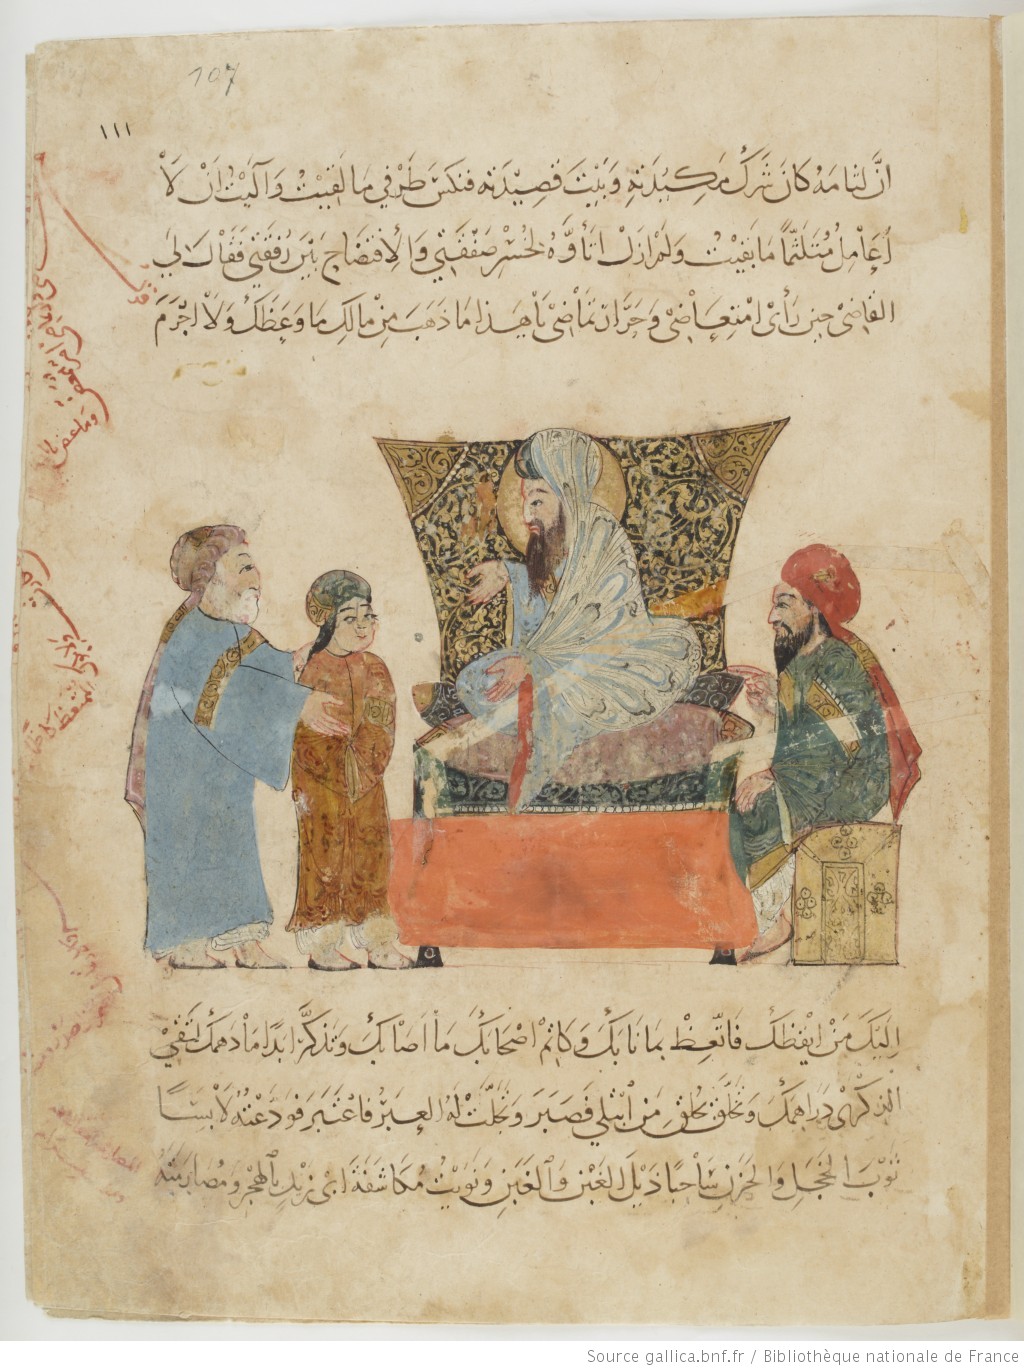 107
١١١
انَّ لثامه كانَ شَرَكَ مَكِيدَتِهِ وَبَيْتَ قَصِيْدَتِهِ فنكسَ طَرْفي مَا لَقِيْتُ وَآلَيْتُ انْ لَا
اُعَامِلُ مُتَلَثِّمًا مَا بَقِيْتُ وَلمْ ازَلْ اتَأوَّهُ لخُسْرِ صَفْقَتِي وَالِافْتِضَاحِ بَيْنَ رُفْقَتِي فَقَالَ لِي
القَاضِي حِينَ رَأى امْتِعَاضِي وَحَرَّ ارتمَاضِي يَا هَذا مَا ذَهَبَ مِنْ مَالِكَ مَا وَعَظَكَ وَلَا اجْرَمَ
اِلَيْكَ مَنْ ايْقَظَكَ فَاتَّعِظْ بمَا نَابَكَ وَكَاتِمْ اصْحَابَكَ مَا اصَابَكَ وَتَذكَّرْ ابَدًا مَا دَهَمَكَ لتَقِيَ
الذِّكْرَى دَرَاهِمَكَ وَتَخَلَّقْ بخُلُقِ مَنِ ابْتُلِي فَصَبَرَ وَتَجَلَّتْ لَهُ العِبَرُ فَاعْتَبَرَ فَوَدَّعْتُهُ لَابِسًا
ثَوْبَ الخَجَلِ وَالحَزَنِ سَاحِبًا ذَيْلَ الغَبْنِ وَالْغَبَنِ وَنَوَيْتُ مُكَاشَفَةَ ابي زَيْدٍ بالهَجْرِ وَمُصَارَمَتِهِ
Source gallica.bnf.fr / Bibliothèque nationale de France